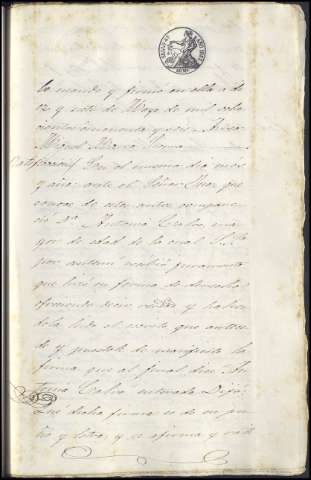 lo mando y firmó en ella a
y siete de Mayo de mil ocho
cientos cincuenta y seis
Miguel María
Ratificacion / En el mismo dia mes
y año, ante el Señor Juez que
conoce de estos autos compare
ció Dn. Antonio Calvo, ma
yor de edad de la cual S.S.
por antemí recibió juramento
que hizo en forma de derecho
ofreciendo decir verdad y habien
dole leido el escrito que antece
de y puestole de manifiesto la
firma que al final dice An
tonio Calvo enterado Dijo:
Que dicha firma es de su pu
ño y letra, y se afirma y rati